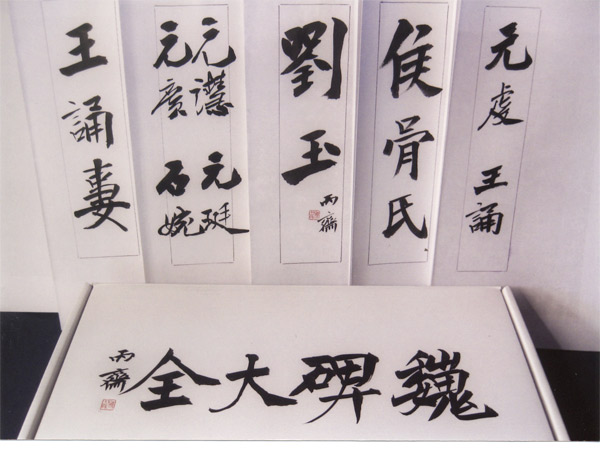 元虔 王誦
侯骨氏
劉玉
丙齋
元譿 元珽
元廣 石婉
王誦妻
魏碑大全
丙齋